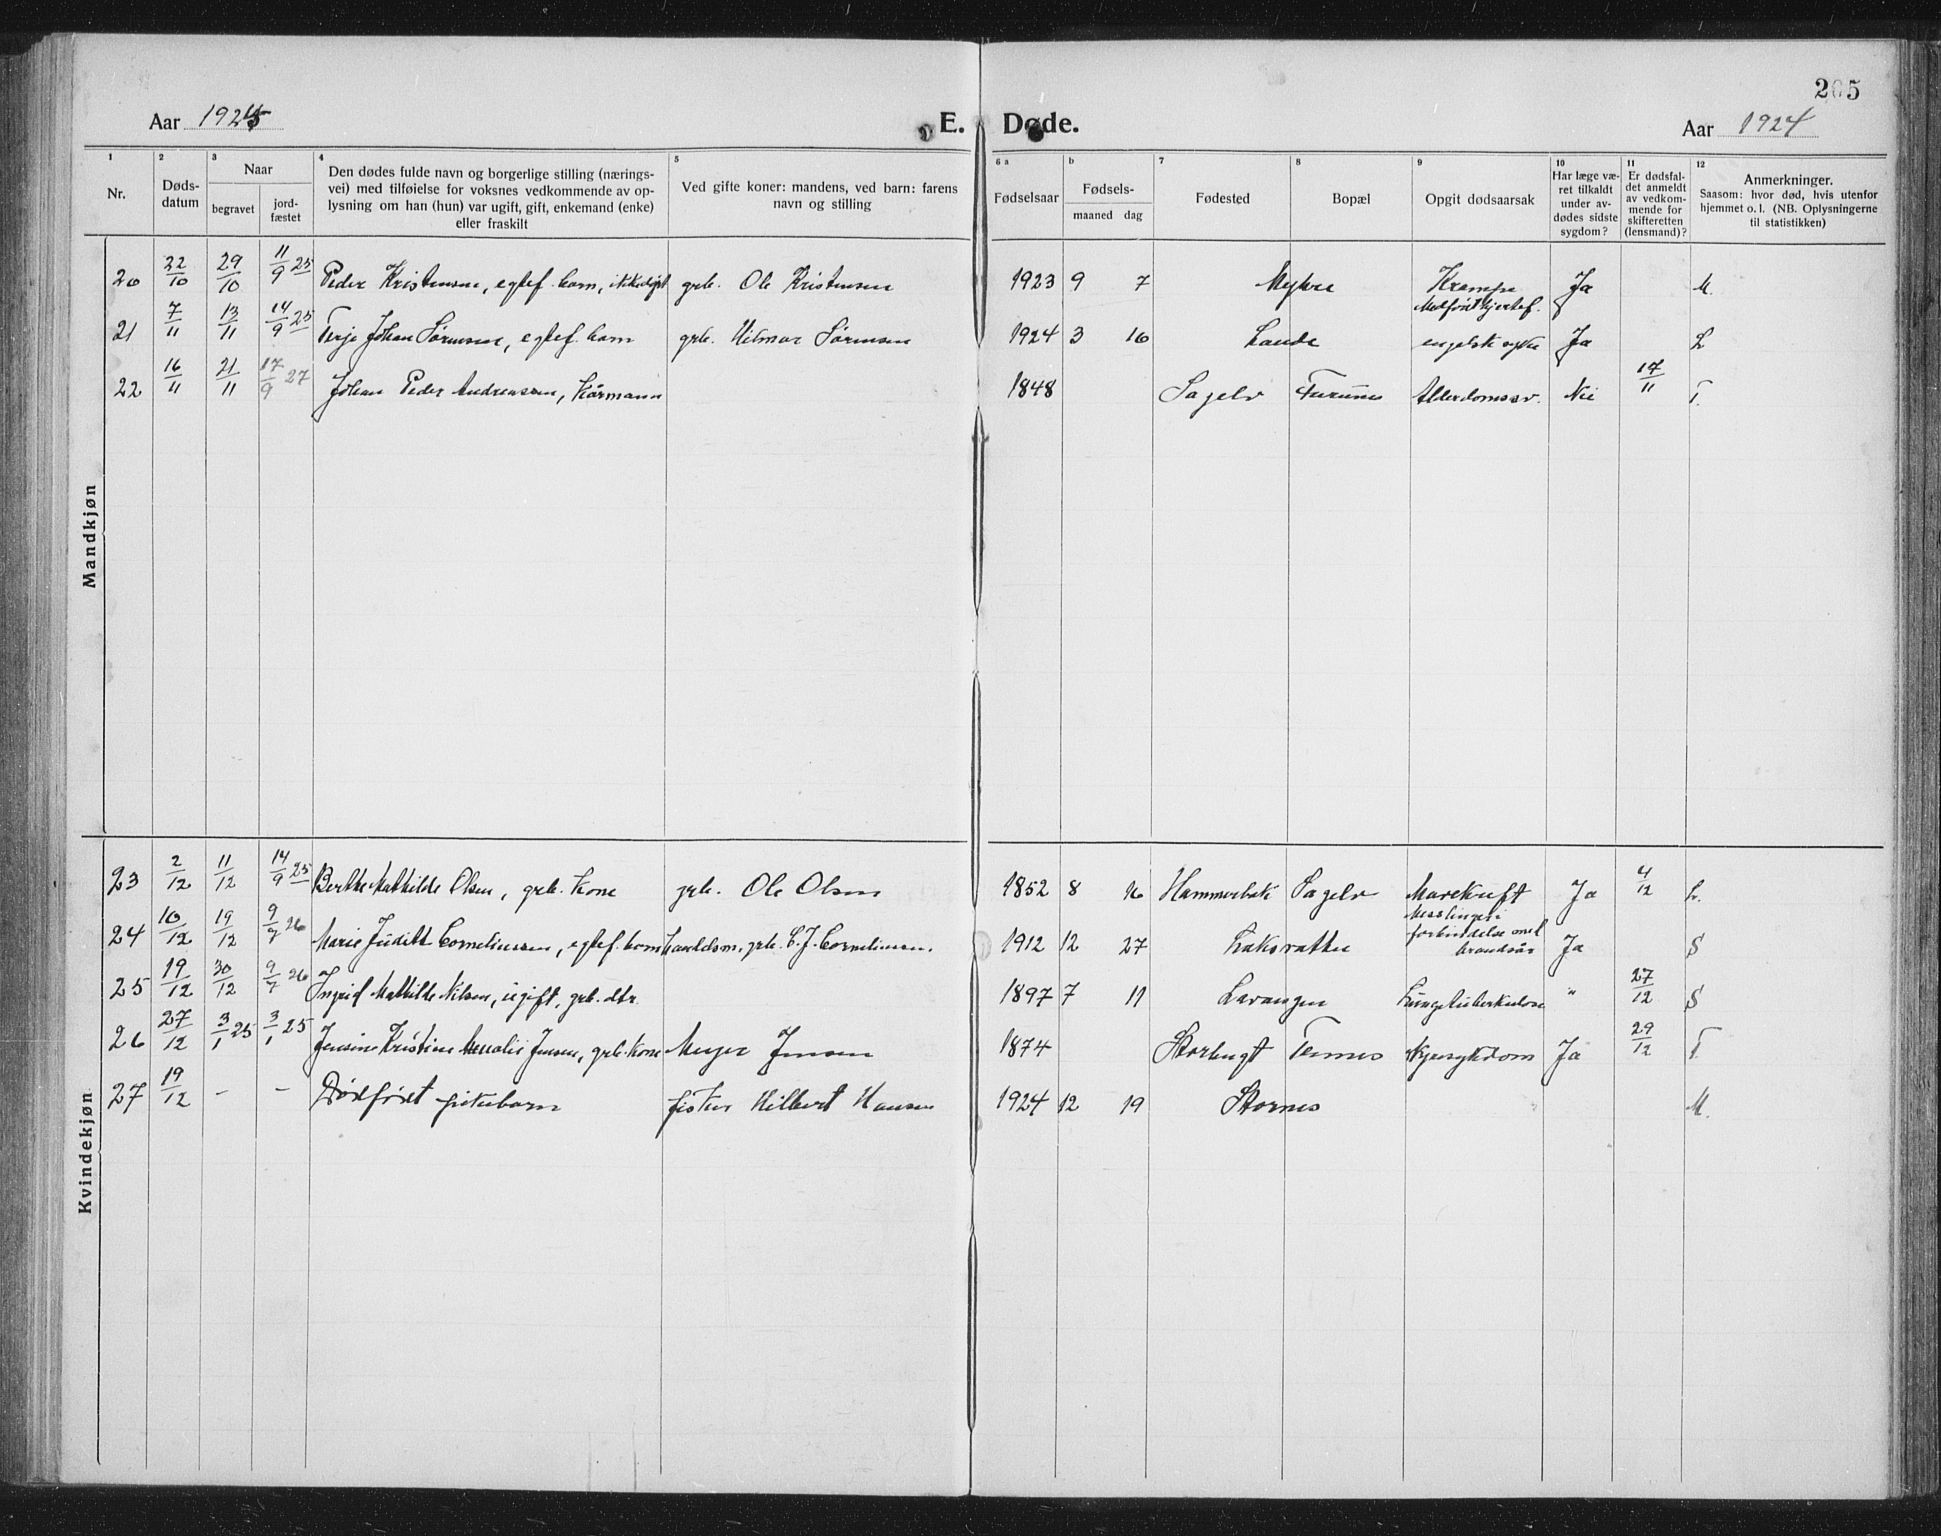 205
Aar 1924
E. Døde.
Aar 1924
1 2 3 4 5 6 a b 7 8 9 10 11 12
Nr.
Døds-
datum
Naar
begravet
jord-
fæstet
Den dødes fulde navn og borgerlige stilling (nærings-
vei) med tilføielse for voksnes vedkommende av op-
lysning om han (hun) var ugift, gift, enkemand (enke)
eller fraskilt
Ved gifte koner: mandens, ved barn: farens
navn og stilling
Fødselsaar
Fødsels-
maaned dag
Fødested
Bopæl
Opgit dødsaarsak
Har læge væ-
ret tilkaldt
under av-
dødes sidste
sygdom?
Er dødsfal-
det anmeldt
av vedkom-
mende for
skifteretten
(lensmand)?
Anmerkninger.
Saasom: hvor død, hvis utenfor
hjemmet o. l. (NB. Oplysningerne
til statistikken)
Mandkjøn
20 22/10 29/10 11/9 25 Peder Kristensen, egtef. barn, grb. Ole Kristensen 1923 9 7 Krampe Ja M.
21 7/11 13/11 14/9 25 Terje Johan Sørensen, egtef. barn grb. Hilmar Sørensen 1924 3 16 Medføst hjertef. engelsk syke Ja L
22 16/11 21/11 17/9 27 Johan Peder Andreassen, Kårmann 1848 Sagelv Furunes Alderdomssv. Nei 17/11 T.
Kvindekjøn
23 2/12 11/12 14/9 25 Berthe Mathilde Olsen, grb. kone grb. Ole Olsen 1852 8 16 Hammerbak Sagelv Mavekræft Ja 4/12 L.
24 10/12 19/12 9/7 26 Marie Judith Corneliussen, egtef. barn grb. C. J. Corneliussen. 1912 12 27 Messlinger i
forbindelse med
brandsår Ja S
25 19/12 30/12 9/7 26 Ingrid Mathilde Nilsen, ugift, grb. dtr. 1897 7 11 Lavangen Lungetuberkulose " 27/12 S
26 27/12 3/1 25 3/1 25 Jensine Kristine Jensen, grb. kone Meyer Jensen 1874 Storbugt Tennes Ja 29/12 T.
27 19/12 - - Dødfødt pikebarn fisker Hilbert Hansen 1924 12 19 Stornes M.